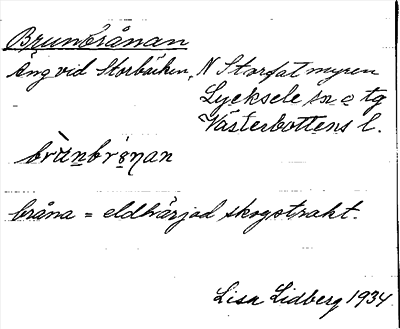 Brunbrånan
Äng vid Storbäcken, N Storfatmyren
Lycksele sn o tg
Västerbottens l.
brùnbrånan
bråna = eldhärjad skogstrakt.
Lisa Lidberg 1934